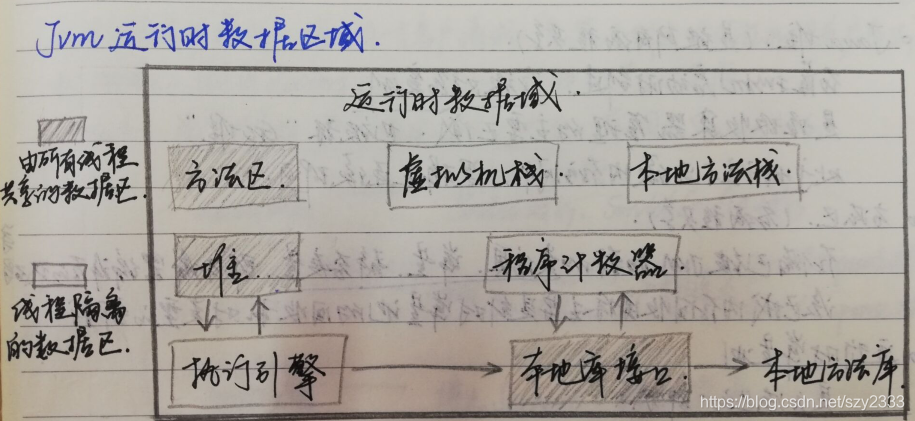 Jvm 运行时数据区域.
运行时数据域.
由所有线程
共享的数据区.
方法区.
虚拟机栈.
本地方法栈.
堆
程序计数器.
线程隔离
的数据区.
执行引擎
本地库接口.
本地方法库.
https://blog.csdn.net/szy2333